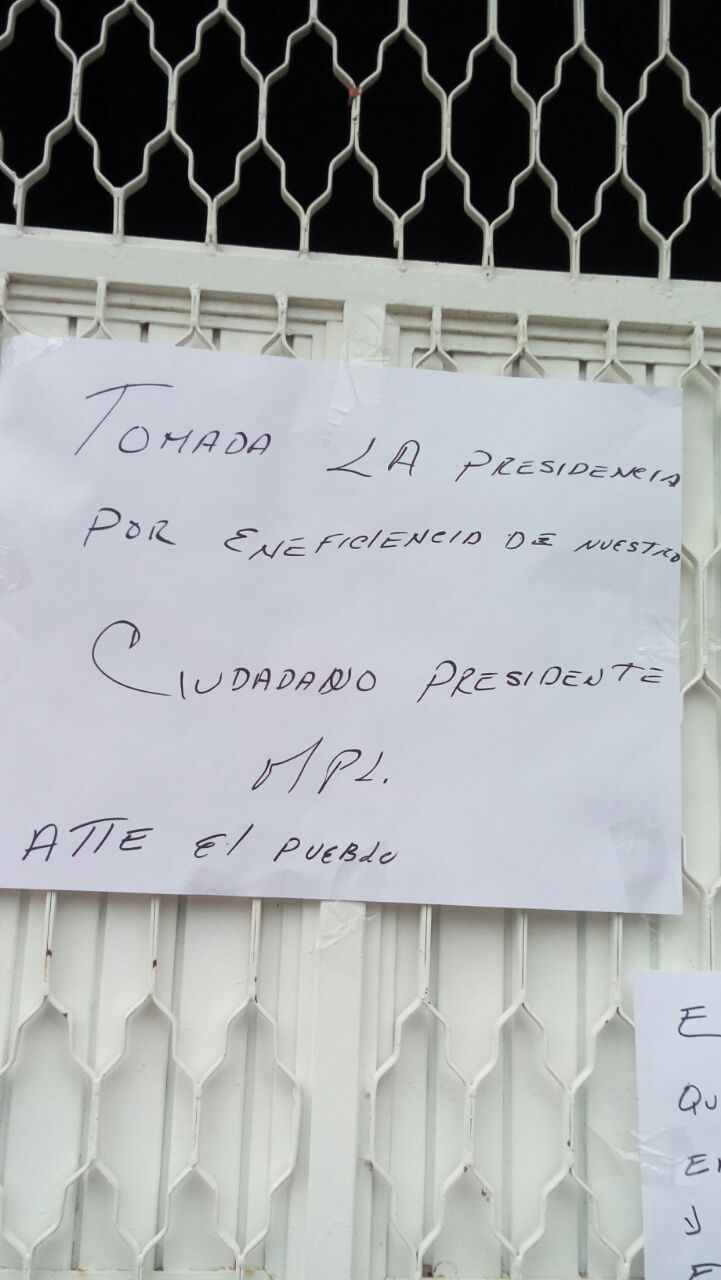 TOMADA LA PRESIDENCIA
POR ENEFICIENCIA DE NUESTRO
CIUDADANO PRESIDENTE
M/PL.
ATTE El PUEBLO
E
QU
EN
Y
E